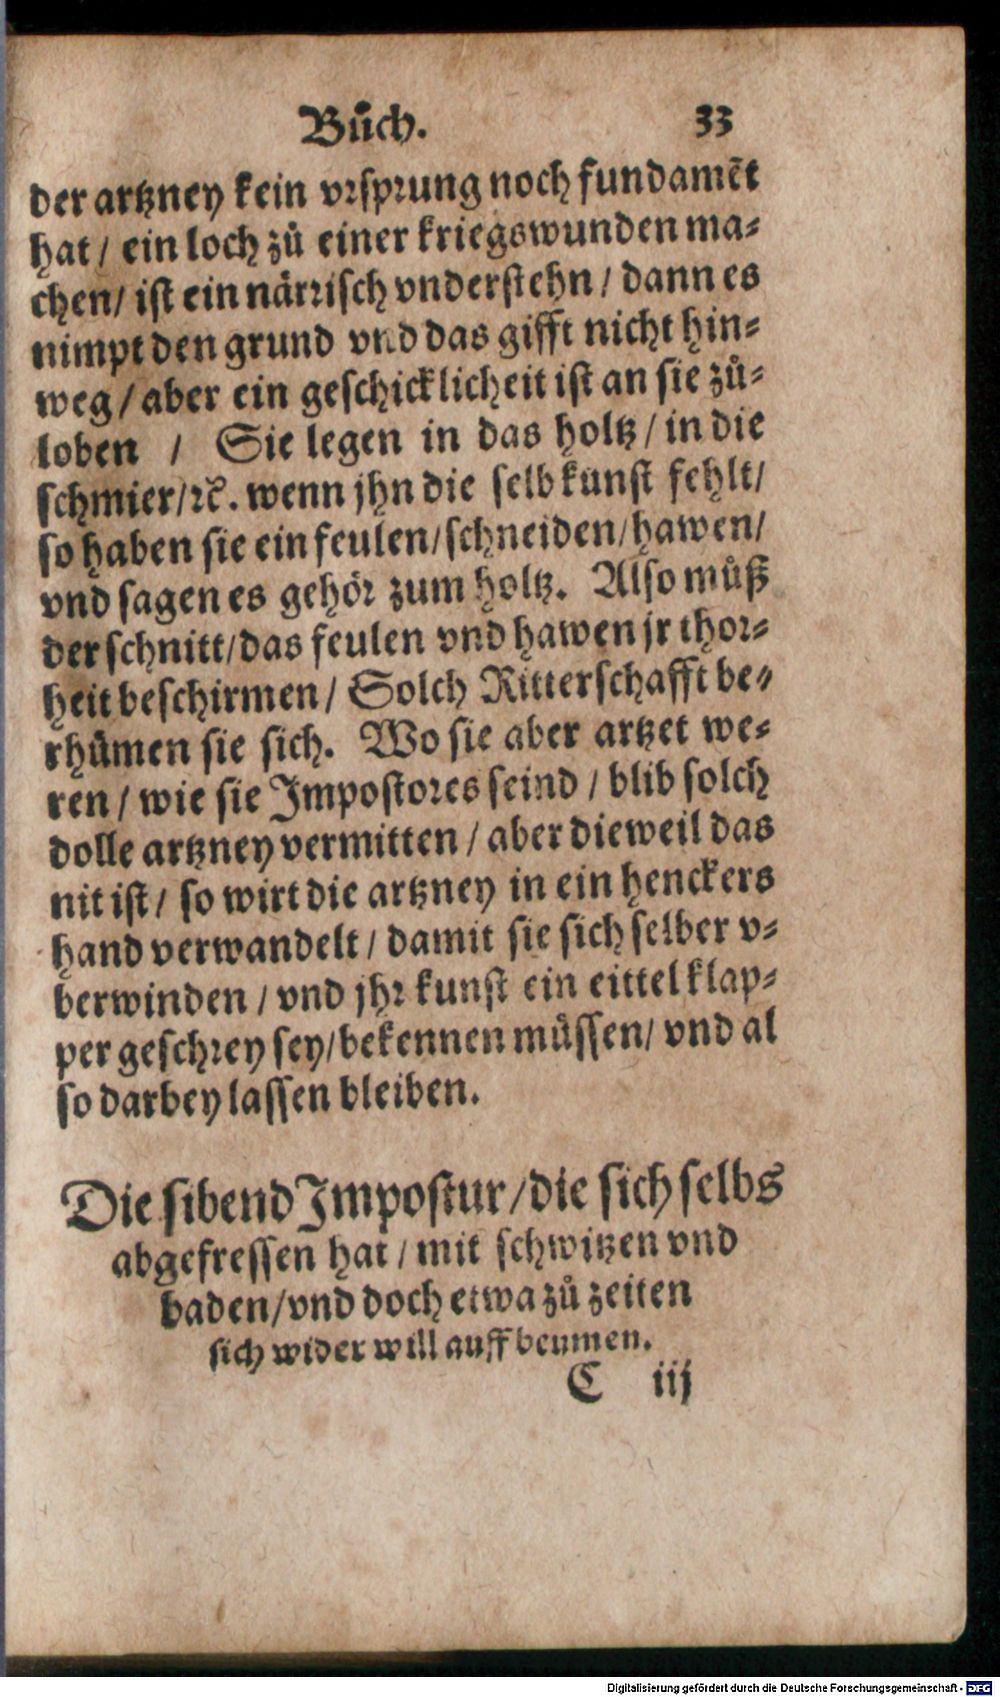 Bůch. 33
der artzney kein vrsprung noch fundamẽt
hat / ein loch zů einer kriegswunden ma⸗
chen / ist ein närrisch vnderstehn / dann es
nimpt den grund vnd das gifft nicht hin⸗
weg / aber ein geschicklicheit ist an sie zů⸗
loben / Sie legen in das holtz / in die
schmier / ꝛc̃. wenn jhn die selb kunst fehlt /
so haben sie ein feulen / schneiden / hawen /
vnd sagen es gehör zum holtz. Also můß
der schnitt / das feulen vnd hawen jr thor⸗
heit beschirmen / Solch Ritterschafft be⸗
rhümen sie sich. Wo sie aber artzet we⸗
ren / wie sie Impostores seind / blib solch
dolle artzney vermitten / aber dieweil das
nit ist / so wirt die artzney in ein henckers
hand verwandelt / damit sie sich selber v⸗
berwinden / vnd jhr kunst ein eittel klap⸗
per geschrey sey / bekennen müssen / vnd al
so darbey lassen bleiben.
Die sibend Impostur / die sich selbs
abgefressen hat / mit schwitzen vnd
baden / vnd doch etwa zů zeiten
sich wider will auff beumen.
C iij
Digitalisierung gefördert durch die Deutsche Forschungsgemeinschaft - DFG